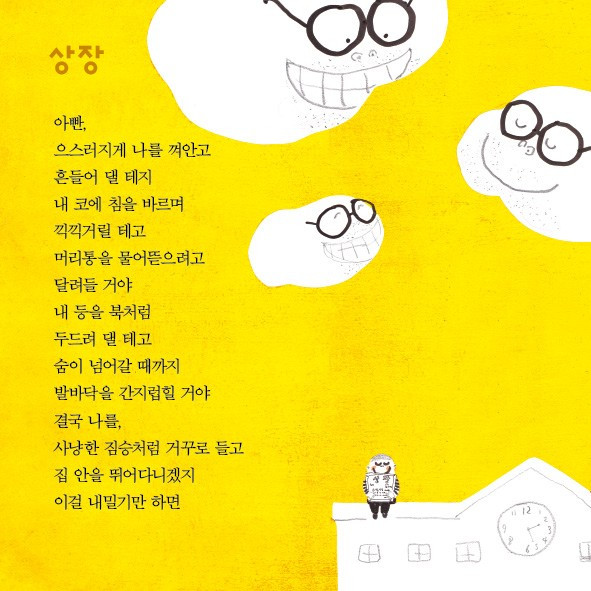 상장
아빤,
으스러지게 나를 껴안고
흔들어 댈 테지
내 코에 침을 바르며
끽끽거릴 테고
머리통을 물어뜯으려고
달려들 거야
내 등을 북처럼
두드려 댈 테고
숨이 넘어갈 때까지
발바닥을 간지럽힐 거야
결국 나를,
사냥한 짐승처럼 거꾸로 들고
집 안을 뛰어다니겠지
이걸 내밀기만 하면
상장
12
3
6
9